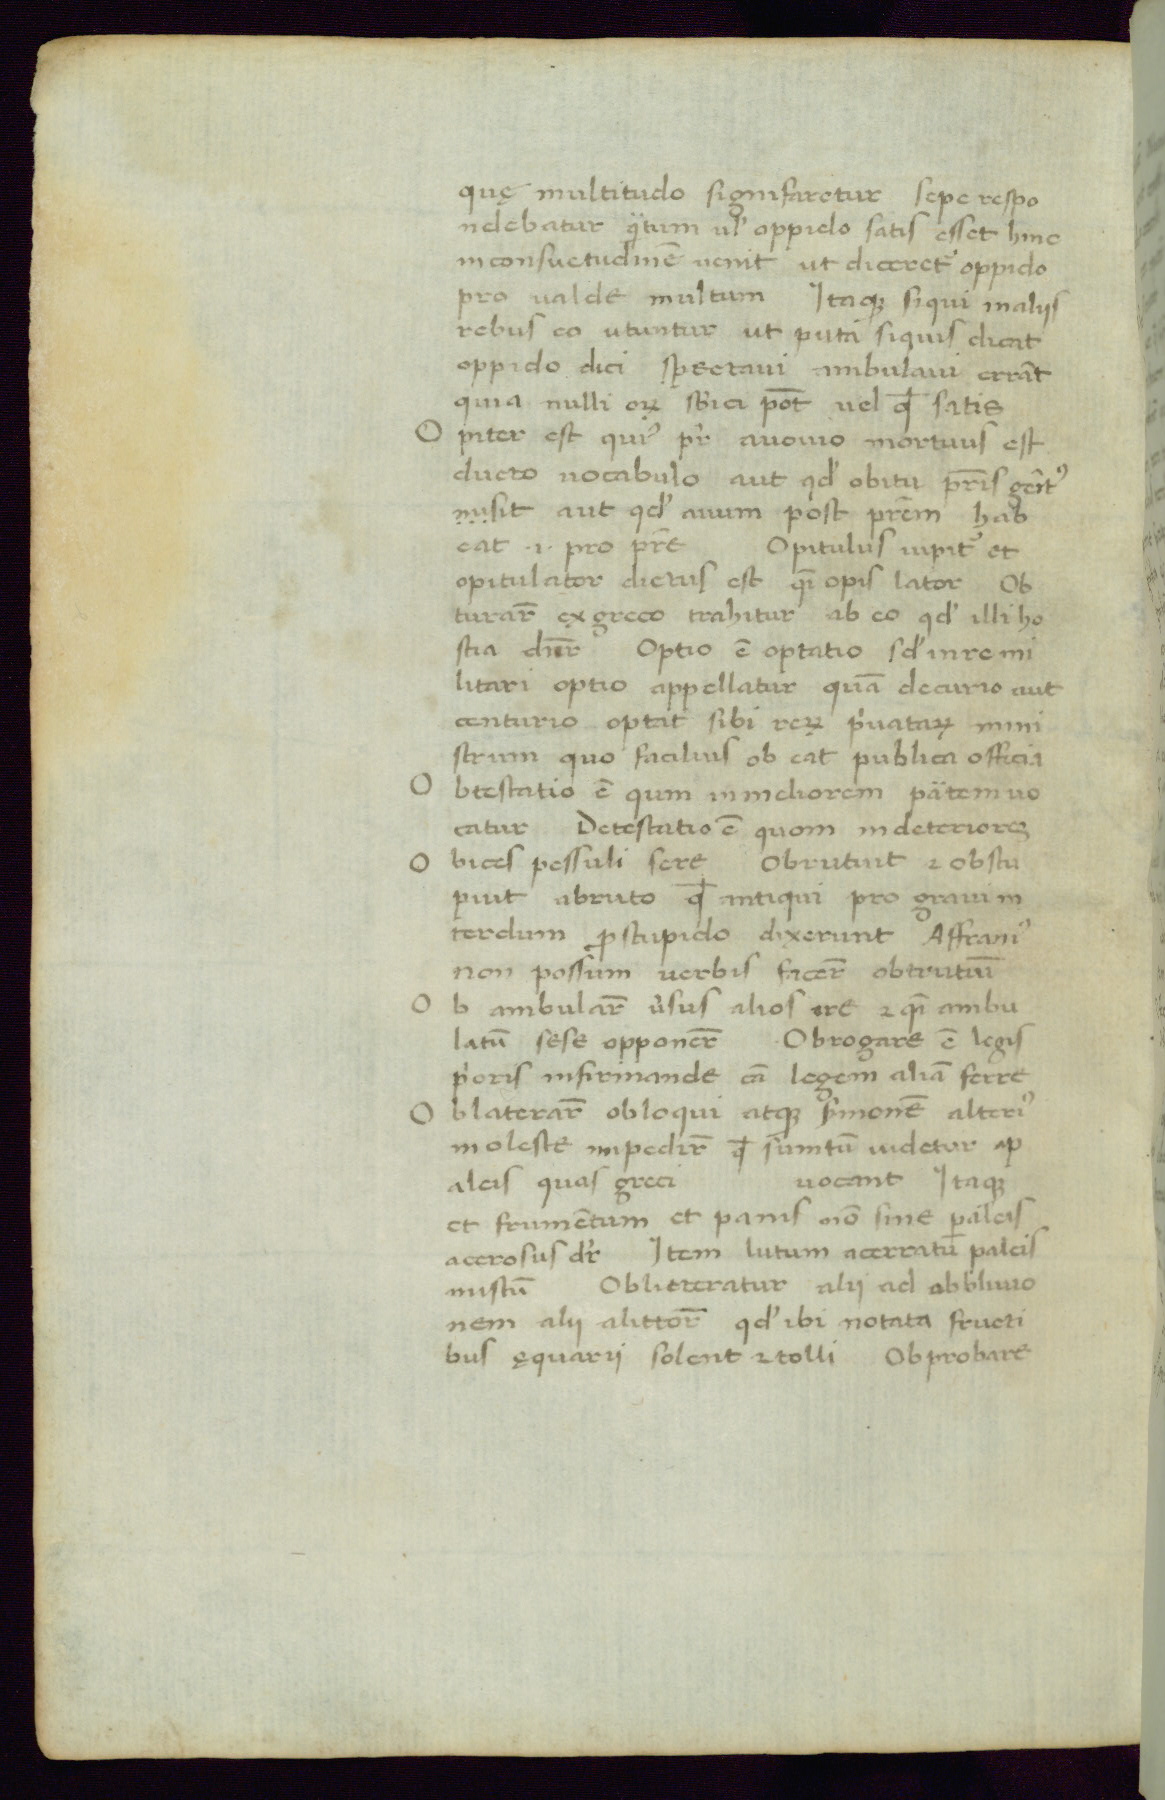 quę multitudo signifaretur sepe respo
ndebatur q̈tum ul' oppido satis esset hinc
in consuetudinē uenit ut diceret᷒ oppido
pro ualde multum Itaqȝ siqui in aliis
rebus eo utuntur ut puta siquis dicat
oppido dici spectaui ambulaui errāt
quia nulli eoꝝ sbici pōt uel qđ satis
O piter est qui᷒ pr̄ auo uiuo mortuus est
ducto uocabulo aut qd' obitu pr̄is genit᷒
nusit aut qd' auum post prēm hab
eat ·i· pro prē Opitulus iupit᷒ et
opitulator dictus est qī opis lator Ob
turar̄ ex greco trahitur ab eo qd' illi ho
stia dn̄r Optio ē optatio sd' in re mi
litari optio appellatur quā decurio aut
centurio optat sibi reꝝ p̓uataꝝ mini
strum quo facilius ob eat publica officia
O btestatio ē qum in meliorem pätem uo
catur Detestatio ē quom in deterioreȝ
O bices pessuli sere Obrutuit ⁊ obstu
puit abruto qđ antiqui pro graui in
terdum ꝓ stupido dixerunt Affrani᷒
non possum uerbis facer̄ obtrutuī
O b ambular̄ u̓sus alios ire ⁊ qī ambu
latū sese opponer̄ Obrogare ē legis
p̓oris infirmande cā legem aliā ferre
O blaterar̄ obloqui atqȝ s̄monē alteri᷒
moleste impedir̄ qđ sumtū uidetur ap
aleis quas greci uocant Itaqȝ
et frumētum et panis nō sine paleis
acerosus dr̄ Item lutum acerratū paleis
mistū Oblitteratur alij ad obbliuio
nem alij alittor̄ qd' ibi notata fructi
bus ęquarij solent ⁊ tolli Obprobare